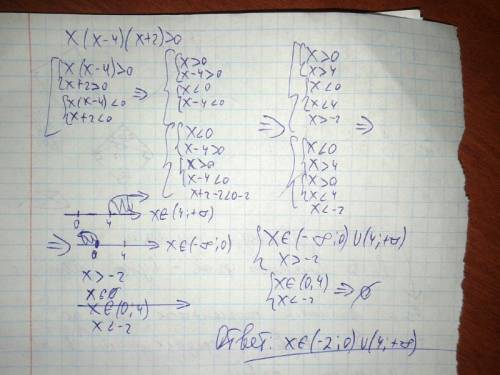 x(x-4)(x+2)>0
x(x-4)>0
x+2>0
x(x-4)<0
x+2<0
=>
x>0
x-4>0
x<0
x-4<0
x<0
x-4>0
x>0
x-4<0
x+2-2<0-2
=>
x>0
x>4
x<0
x<4
x>-2
x<0
x>4
x>0
x<4
x<-2
=>
0 4 x∈(4;+∞)
=> 0 4 x∈(-∞;0)
x>-2
x∈
x∈(0,4)
x<-2
x∈(-∞;0)∪(4;+∞)
x>-2
x∈(0,4)
x<-2
=> ∅
Ответ: x∈(-2;0)∪(4;+∞)